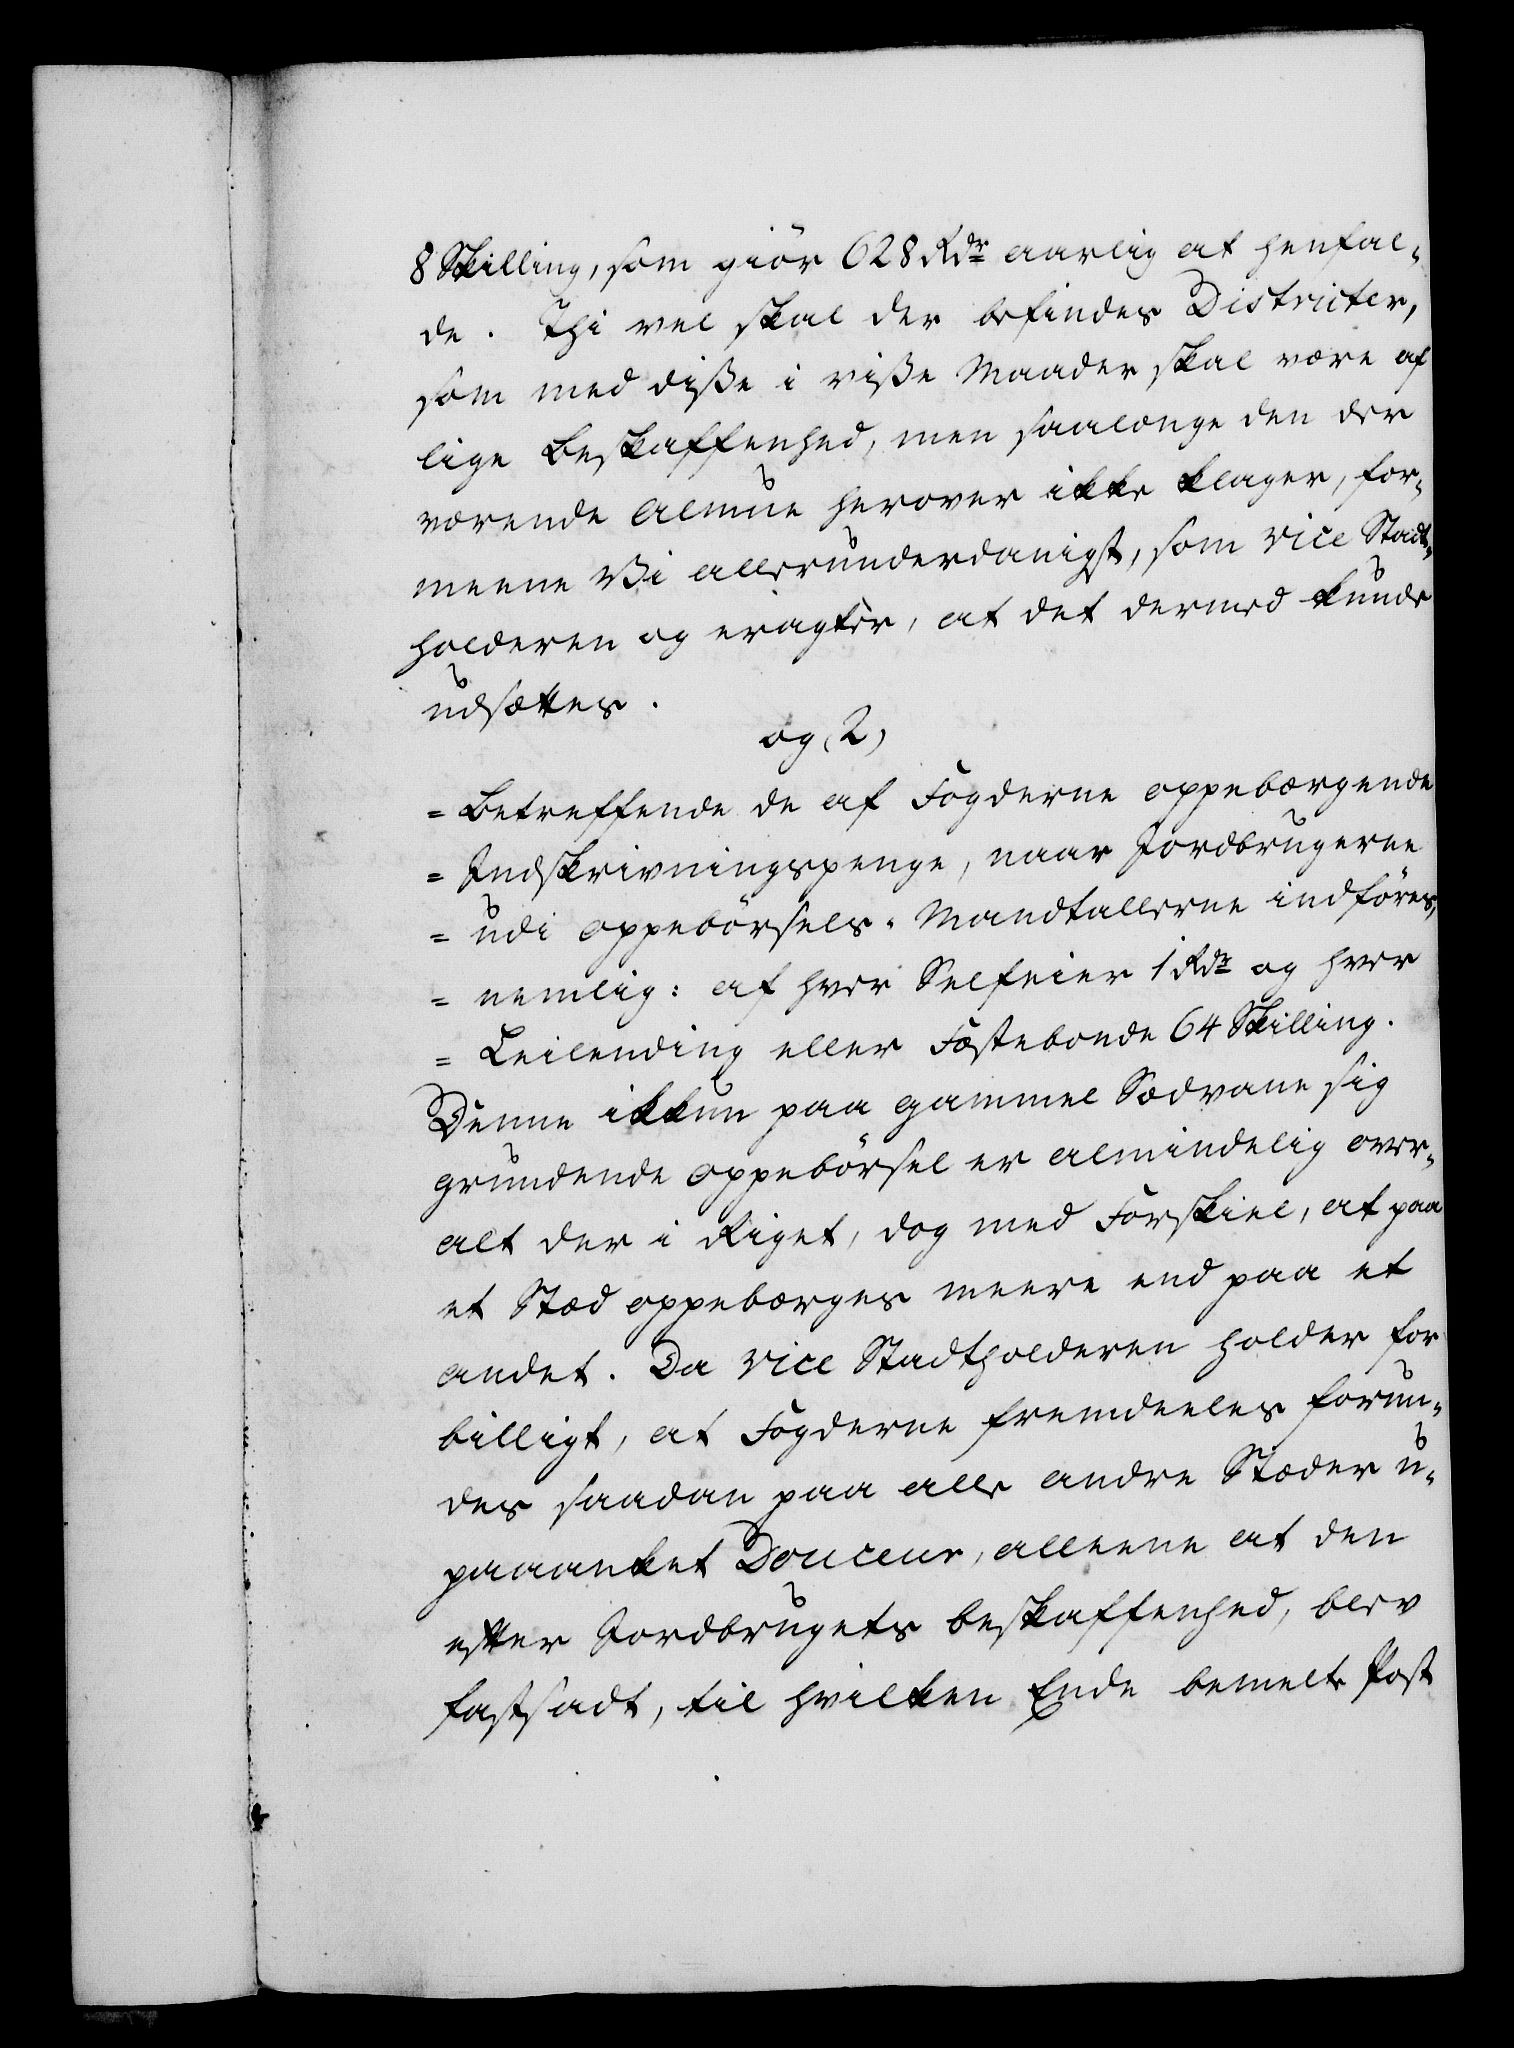 8 Skilling, som giör 628 Rdr aarlig at henfal-
de. Thi vel skal der befindes Districter,
som med diße i viße Maader skal være af
lige Beskaffenhed, men saalænge den der
værende Almue herover ikke klager, for-
meene Vi allerunderdanigst, som Vice Stadt-
holderen og eragter, at det dermed kunde
udsættes.
og 2)
= Betreffende de af Fogderne oppebærgende
= Indskrivningspenge, naar Jordbrugerne
= udi Oppebörsels-Mandtallerne indföres,
= nemlig: af hver Selfeier 1 Rdr og hver
= Leilending eller Fæstebonde 64 Skilling.
Denne ikkun paa gammel Sædvane sig
grundende Oppebörsel er almindelig over-
alt der i Riget, dog med Forskiel, at paa
et Stæd oppebærges meere end paa et
andet. Da Vice Stadtholderen holder for
billigt, at Fogderne fremdeeles forun-
des saadan paa alle andre Stæder u-
paaanket Douceur, alleene at den
efter Jordbrugets beskaffenhed, blev
fastsadt, til hvilken Ende bemelte Post